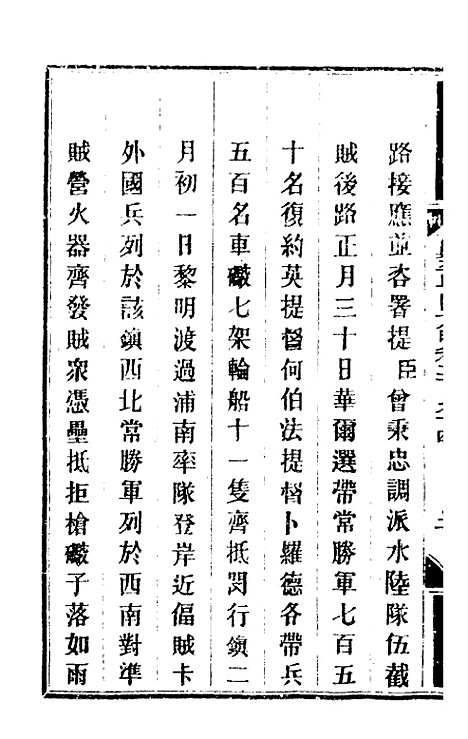 路接應並咨署提臣曾秉忠調派水陸隊伍截
賊後路正月三十日華爾選帶常勝軍七百五
十名復約英提督何伯法提督卜羅德各帶兵
五百名車礮七架輪船十一隻齊抵閔行鎮二
月初一日黎明渡過浦南率隊登岸近偪賊卡
外國兵列於該鎮西北常勝軍列於西南對準
賊營火器齊發賊眾憑壘抵拒槍礮子落如雨